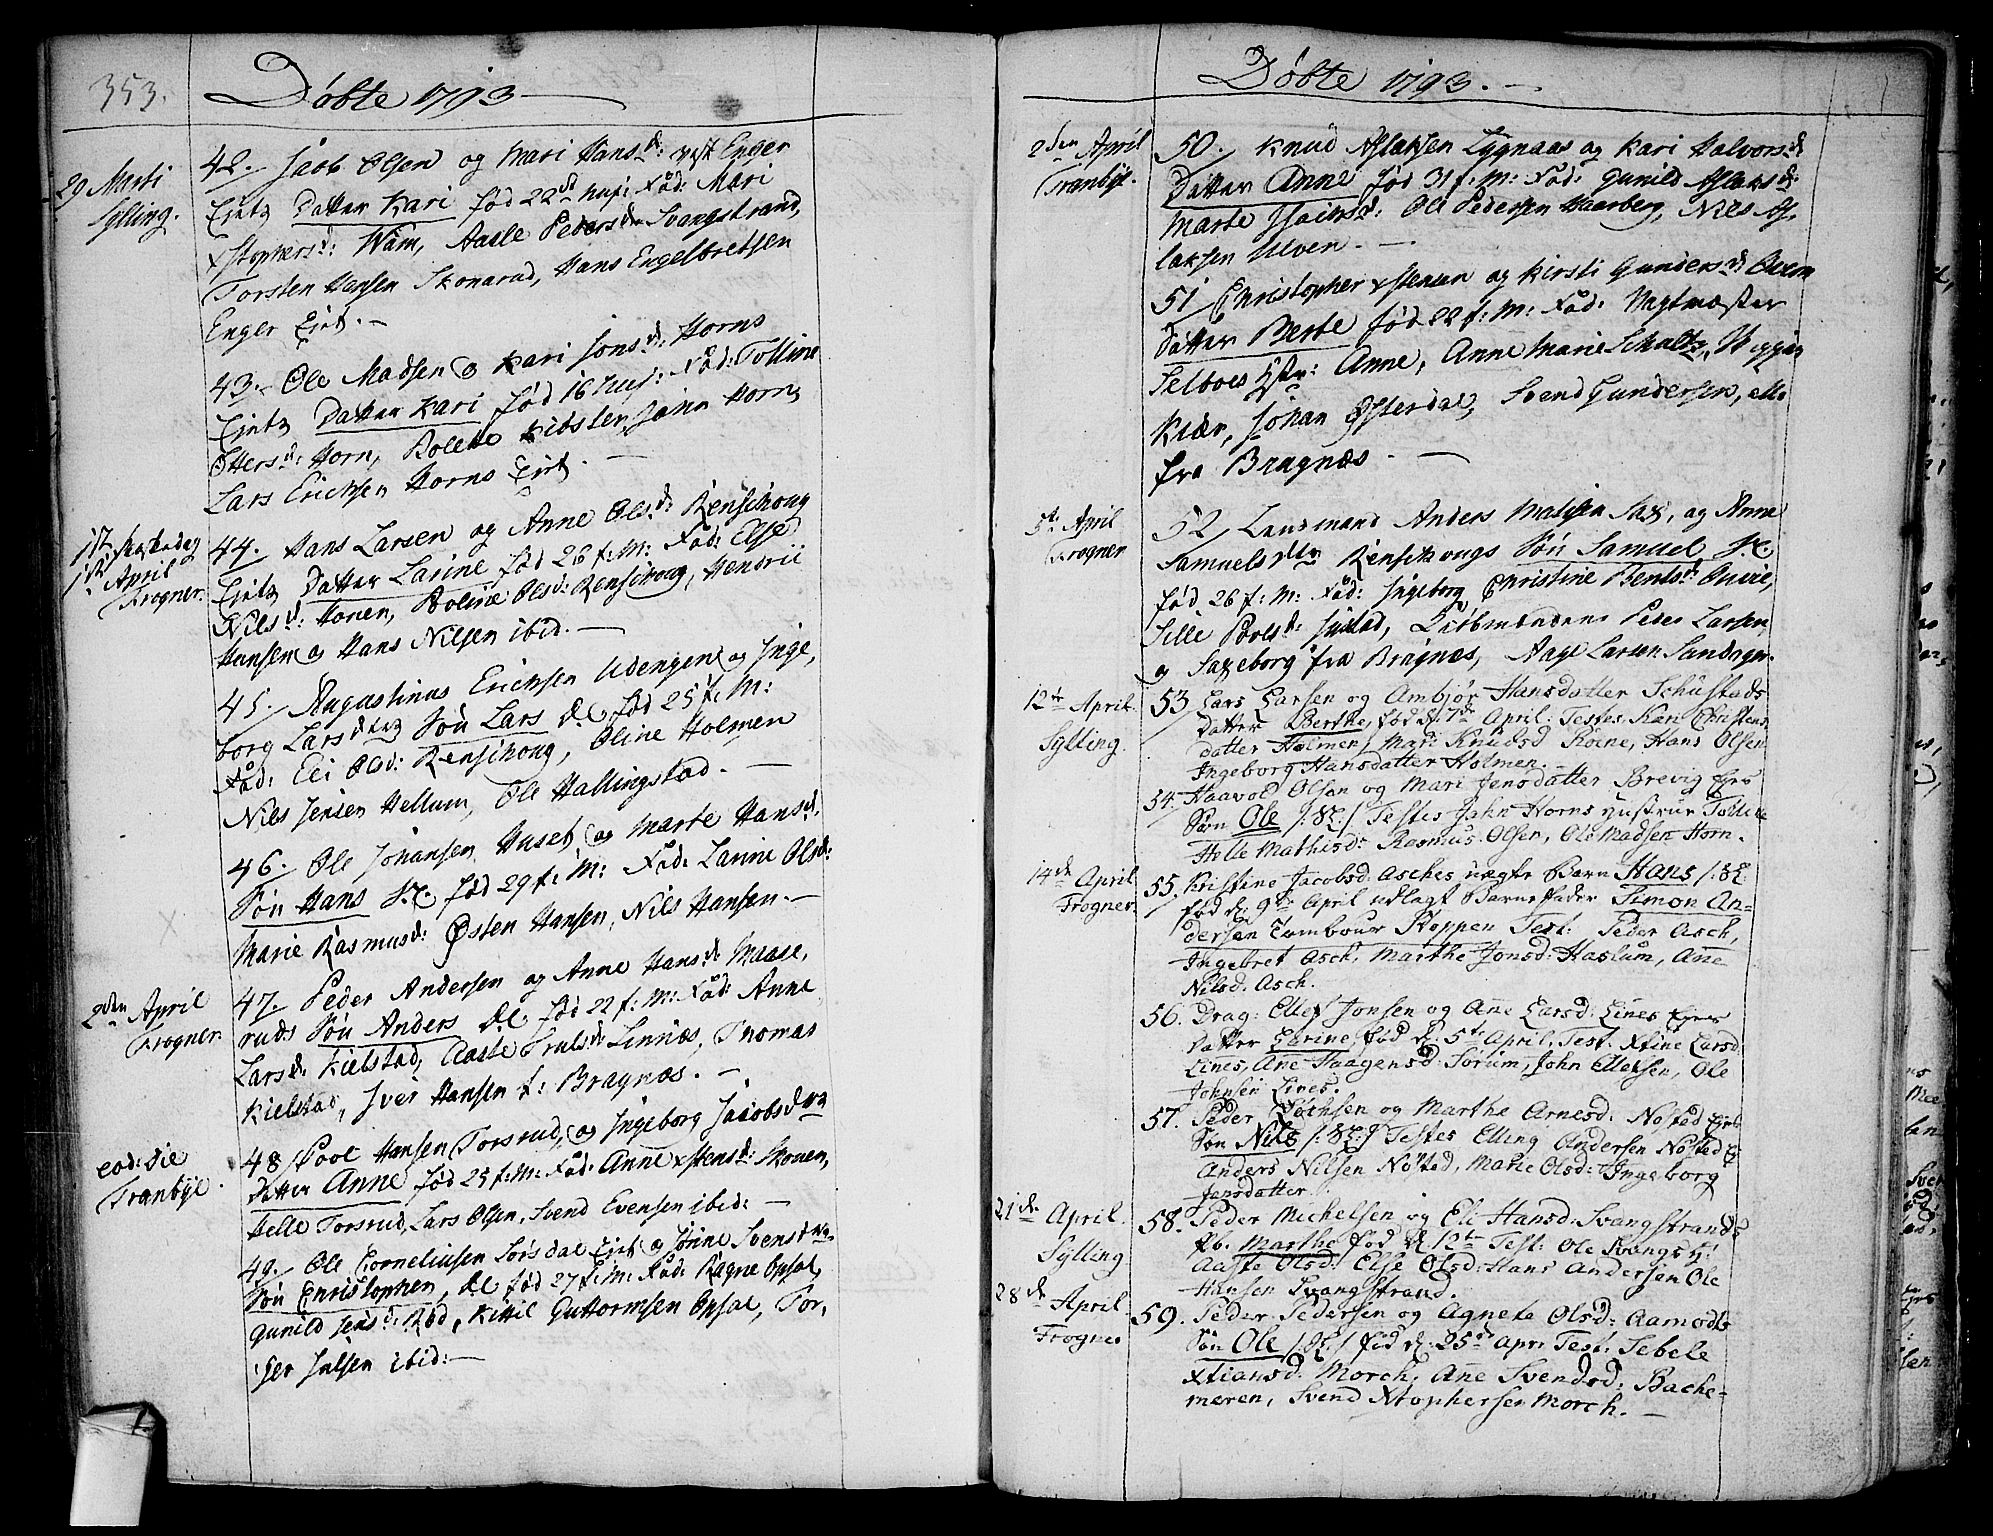 353.
Döbte 1793
29 Marti
Sylling.
42. Jacob Olsen og Mari Hansd: vest Enger
Ejets Datter Kari fød 22d huj: Fad: Mari
xstophersd: Wam, Aasle Pedersdr Svangstrand,
Torsten Hansen Skonarud, Hans Engelbretsen
Enger Ejet.
43. Ole Madsen og Kari Jonsd: Horns
Ejets Datter Kari fød 16 huj: Fad: Tolline
Ittersd: Horn, Bolette Kibsler, John Horn,
Lars Ericksen Horns Ejet.
April
Frogner.
44. Hans Larsen og Anne Olsd: Rensihoug
Ejets Datter Larine fød 26 f: M: Fad: Else
Nilsd: Honen, Boline Olsd: Rensihoug, Henric
Hansen og Hans Nilsen ibid.
45. Augustinus Ericksen Udengene og Inge,
borg Larsdtrs Sön Lars fød 25 f: M:
Fad: Eli Olsd: Rensihoug, Oline Holmen
Nils Jensen Hellum, Ole Hallingstad.
46. Ole Johansen Huset, og Marte Hansd.
Sön Hans fød 29 f: M: Fad: Larine Olsd:
Marie Rasmusd: Østen Hansen, Nils Hansen.
2den April
Frogner.
47. Peder Andersen og Anne Hansd Maase,
ruds Sön Anders fød 22 f: M: Fad: Anne
Larsd: Kielstad, Aaste Trulsd Linnæs, Thomas
Kielstad, Iver Hansen f: Bragnæs.
eod: die
Tranbÿe.
48 Povl Hansen Torsrud, og Ingeborg Jacobsdtrs
Datter Anne fød 25 f: M: Fad: Anne xstensd: Skoven,
Helle Torsrud, Lars Olsen, Svend Evensen ibid:
49. Ole Corneliusen Sørsdal Ejet og Jönne Svensdtrs
Sön Christopher, fød 27 f: M: Fad: Ragne Opsal,
Gunild Jensd: Rød, Kittil Guttormsen Opsal, Tor,
ger Julsen ibid:
Döbte 1793.
2den April
Tranbÿe.
50. Knud Aslaksen Lygnaas og Kari Halvorsd
Datter Anne fød 31 f: M: Fad: Gunild Aslaksd:
Marte Isacksd: Ole Pedersen Haarberg, Nils As,
laksen Ulven.
51 Christopher xstensen og Kirsti Gundersd
Datter Berte fød 22 f: M: Fad: Vagtmæster
Selboes Hstr: Anne, Anne Marie Schultz,
Kiær, Johan Østerdal, Svend Gundersen, alle
fra Bragnæs.
5te April
Frogner
52 Lensmand Anders Madsen Sax, og Anne
Samuelsdtr Rensihougs Sön Samuel
fød 26 f: M: Fad: Ingeborg Christine Bentsd:
Sille Povlsd: Kiöbmændene Peder Larsen
og Saxeborg fra Bragnæs, Aage Larsen Sandager.
12te April.
Sylling.
53 Lars Larsen og Ambjør Hansdatter Schustads
Datter Berthe, fød d. 7de April. Testes, Kari Christens
datter Holmen, Mari Knudsd Roine, Hans Olsen
Ingeborg Hansdatter Holmen.
54. Haavol Olsen og Mari Jensdatter Brevig Ejes
Søn Ole Testes John Horns hustrue Tolline
Helle Mathisd: Rasmus Olsen, Ole Madsen Horn.
14de April
Frogner.
55. Kristine Jacobsd: Asches uægte Barn Hans
fød d. 9de April udlagt Barnefader Simon An-
dersen Tambour Koppen Test: Peder Asch,
Ingebret Asch, Marthe Jonsd: Haslum, Ane
Nilsd. Asch.
56. Drag: Ellef Jonsen og Ane Larsd: Lines Ejes
Datter Larine, fød d. 5te April, Test: Xtine Larsd:
Lines, Ane Haagensd: Sørum, John Ellefsen, Ole
Johnsen Lines.
57. Peder Erichsen og Marthe Arnesd: Nøstad Ejes
Søn Nils Testes Elling Andersen Nøstad E
Anders Nilsen Nøstad, Marie Olsd: Ingeborg
Jensdatter
21de April.
Sylling
58. Peder Michelsen og Eli Hansd: Svangstrands
Pb. Marthe fød d. 12te Test: Ole Svangs H:
Aaste Olsd: Else Olsd: Hans Andersen Ole
Hansen Svangstrand.
28de April
Frogner
59. Peder Pedersen og Agnete Olsd: Aamodts
Søn Ole fød d. 25d Apr: Test: Sebele
Xtiansd: Morch, Ane Svendsd: Bache-
meren, Svend Xtophersen Morch.